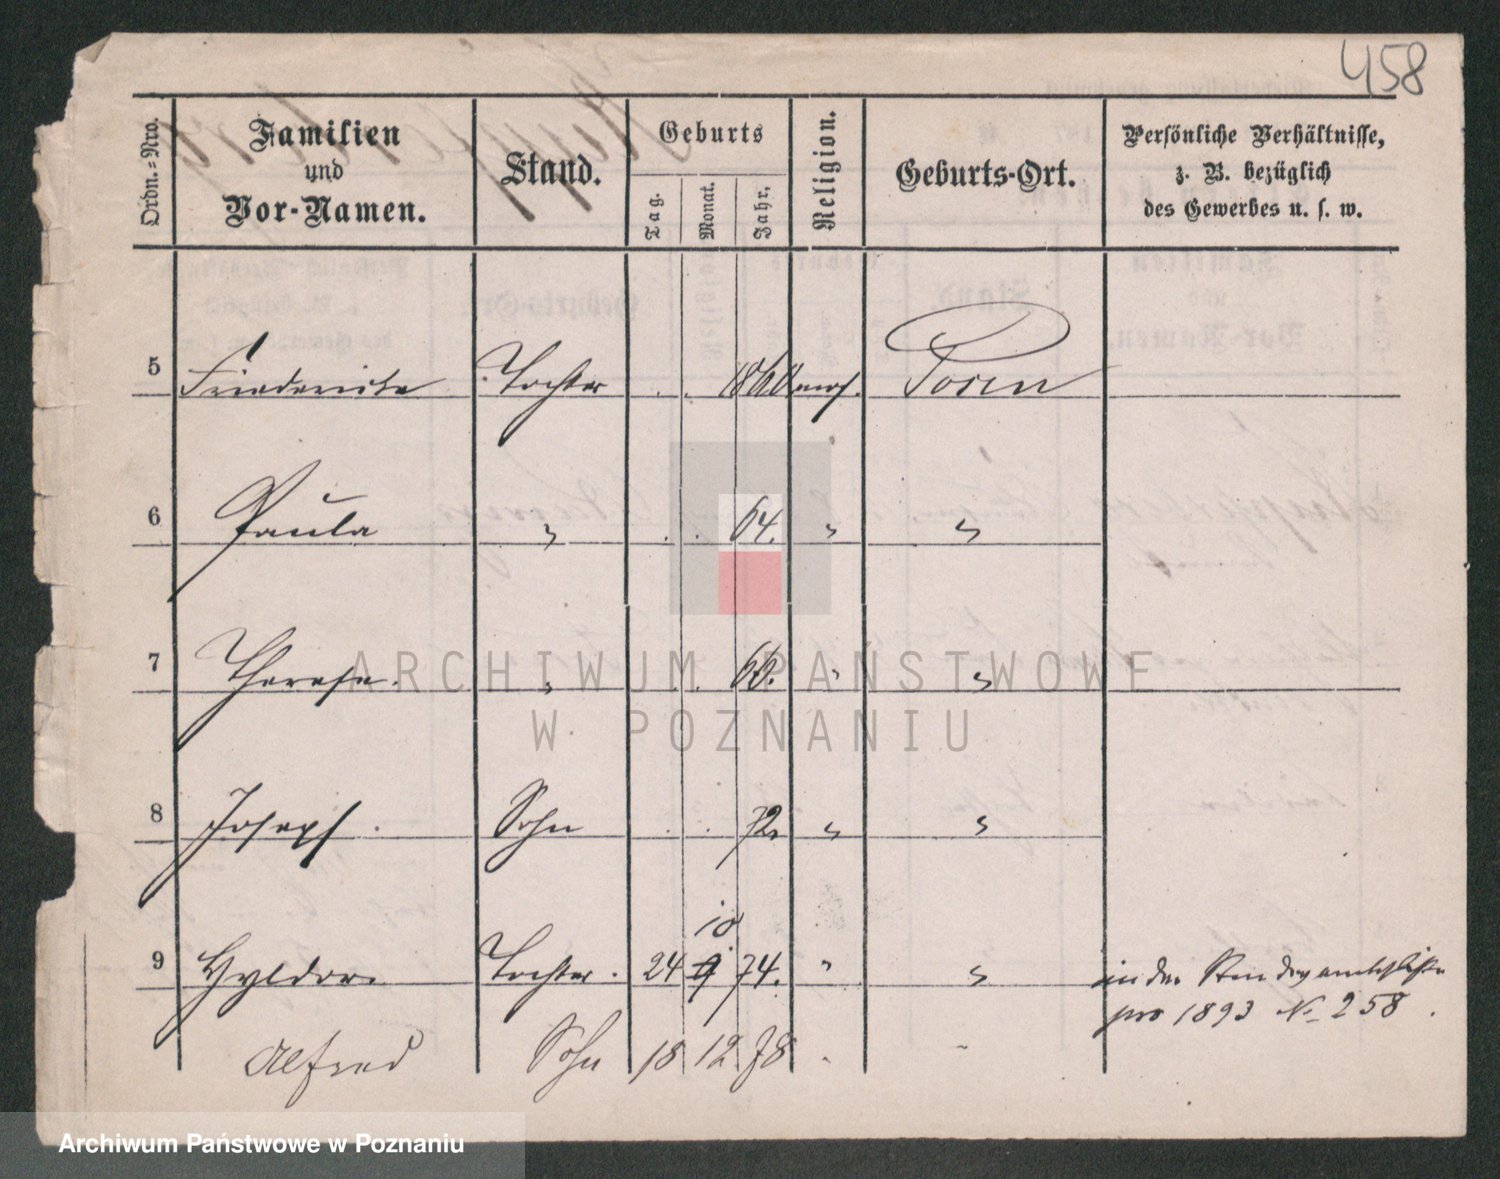 458
Ordn.-Nro.
Familien
und
Vor-Namen.
Stand.
Geburts
Tag.
Monat.
Jahr.
Religion.
Geburts-Ort.
Persönliche Verhältnisse,
z. B. bezüglich
des Gewerbes u. s. w.
5 Friederike Tochter . . 1860 mos. Posen
6 Paula " . . 64. " "
7 Therese. " . . 66. " "
8 Joseph. Sohn . . 72. " "
10
9 Tochter. 24 9 74. " " in der
pro 1893 No 258.
Alfred Sohn 18 12 78 " "
ARCHIWUM PAŃSTWOWE
W POZNANIU
Archiwum Państwowe w Poznaniu